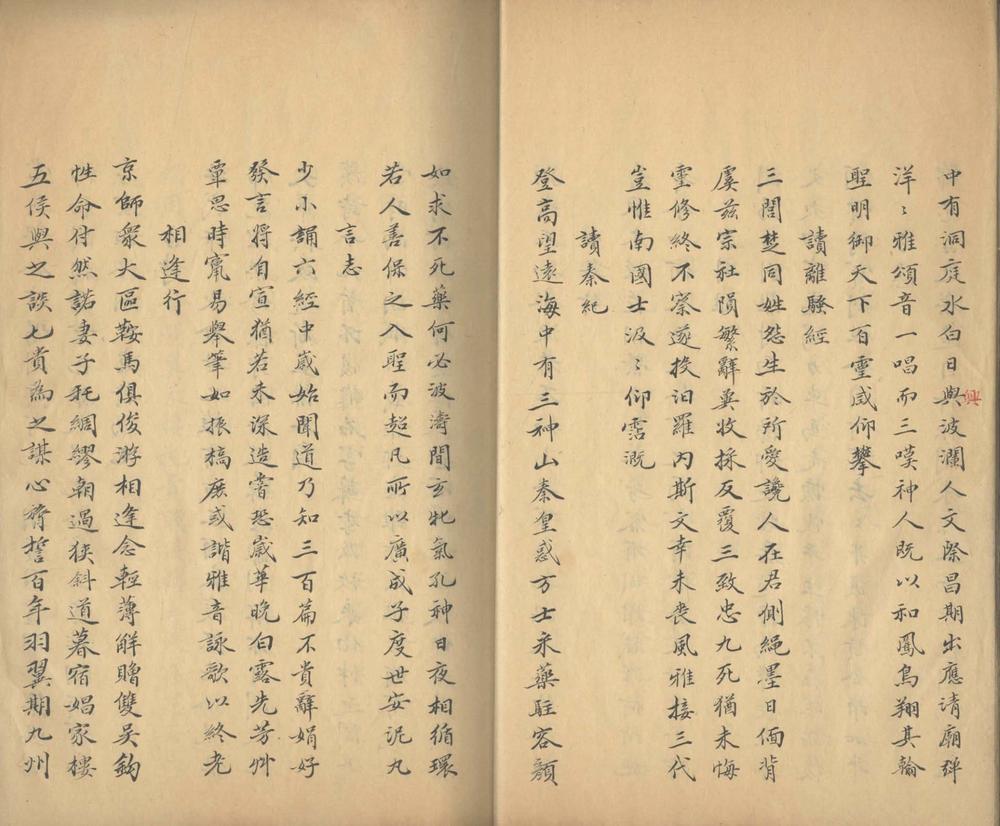 中有洞庭水白日與波瀾人文際昌期出應清廟彈
興
洋〻雅頌音一唱而三嘆神人既以和鳳鳥翔其輪
聖明御天下百靈咸仰攀
讀離騷經
三閭楚同姓怨生於所愛讒人在君側繩墨日偭背
虞茲宗社隕繁辭冀收採反覆三致忠九死猶未悔
靈修終不察遂投汨羅內斯文幸未喪風雅接三代
豈惟南國士汲〻仰霑溉
讀秦紀
登高望遠海中有三神山秦皇惑方士采藥駐容顏
如求不死藥何必波濤間玄牝氣孔神日夜相循環
若人善保之入聖而超凡所以廣成子度世安泥丸
言志
少小誦六經中歲始聞道乃知三百篇不貴辭娟好
發言將自宣猶若未深造嘗恐歲華晚白露先芳艸
覃思時寘易舉筆如振槁庶或諧雅音詠歌以終老
相逢行
京師眾大區鞍馬俱俊游相逢念輕薄解贈雙吳鈎
性命付然諾妻子托綢繆朝過狹斜道暮宿娼家樓
五侯與之談七貴為之謀心膂誓百年羽翼期九州